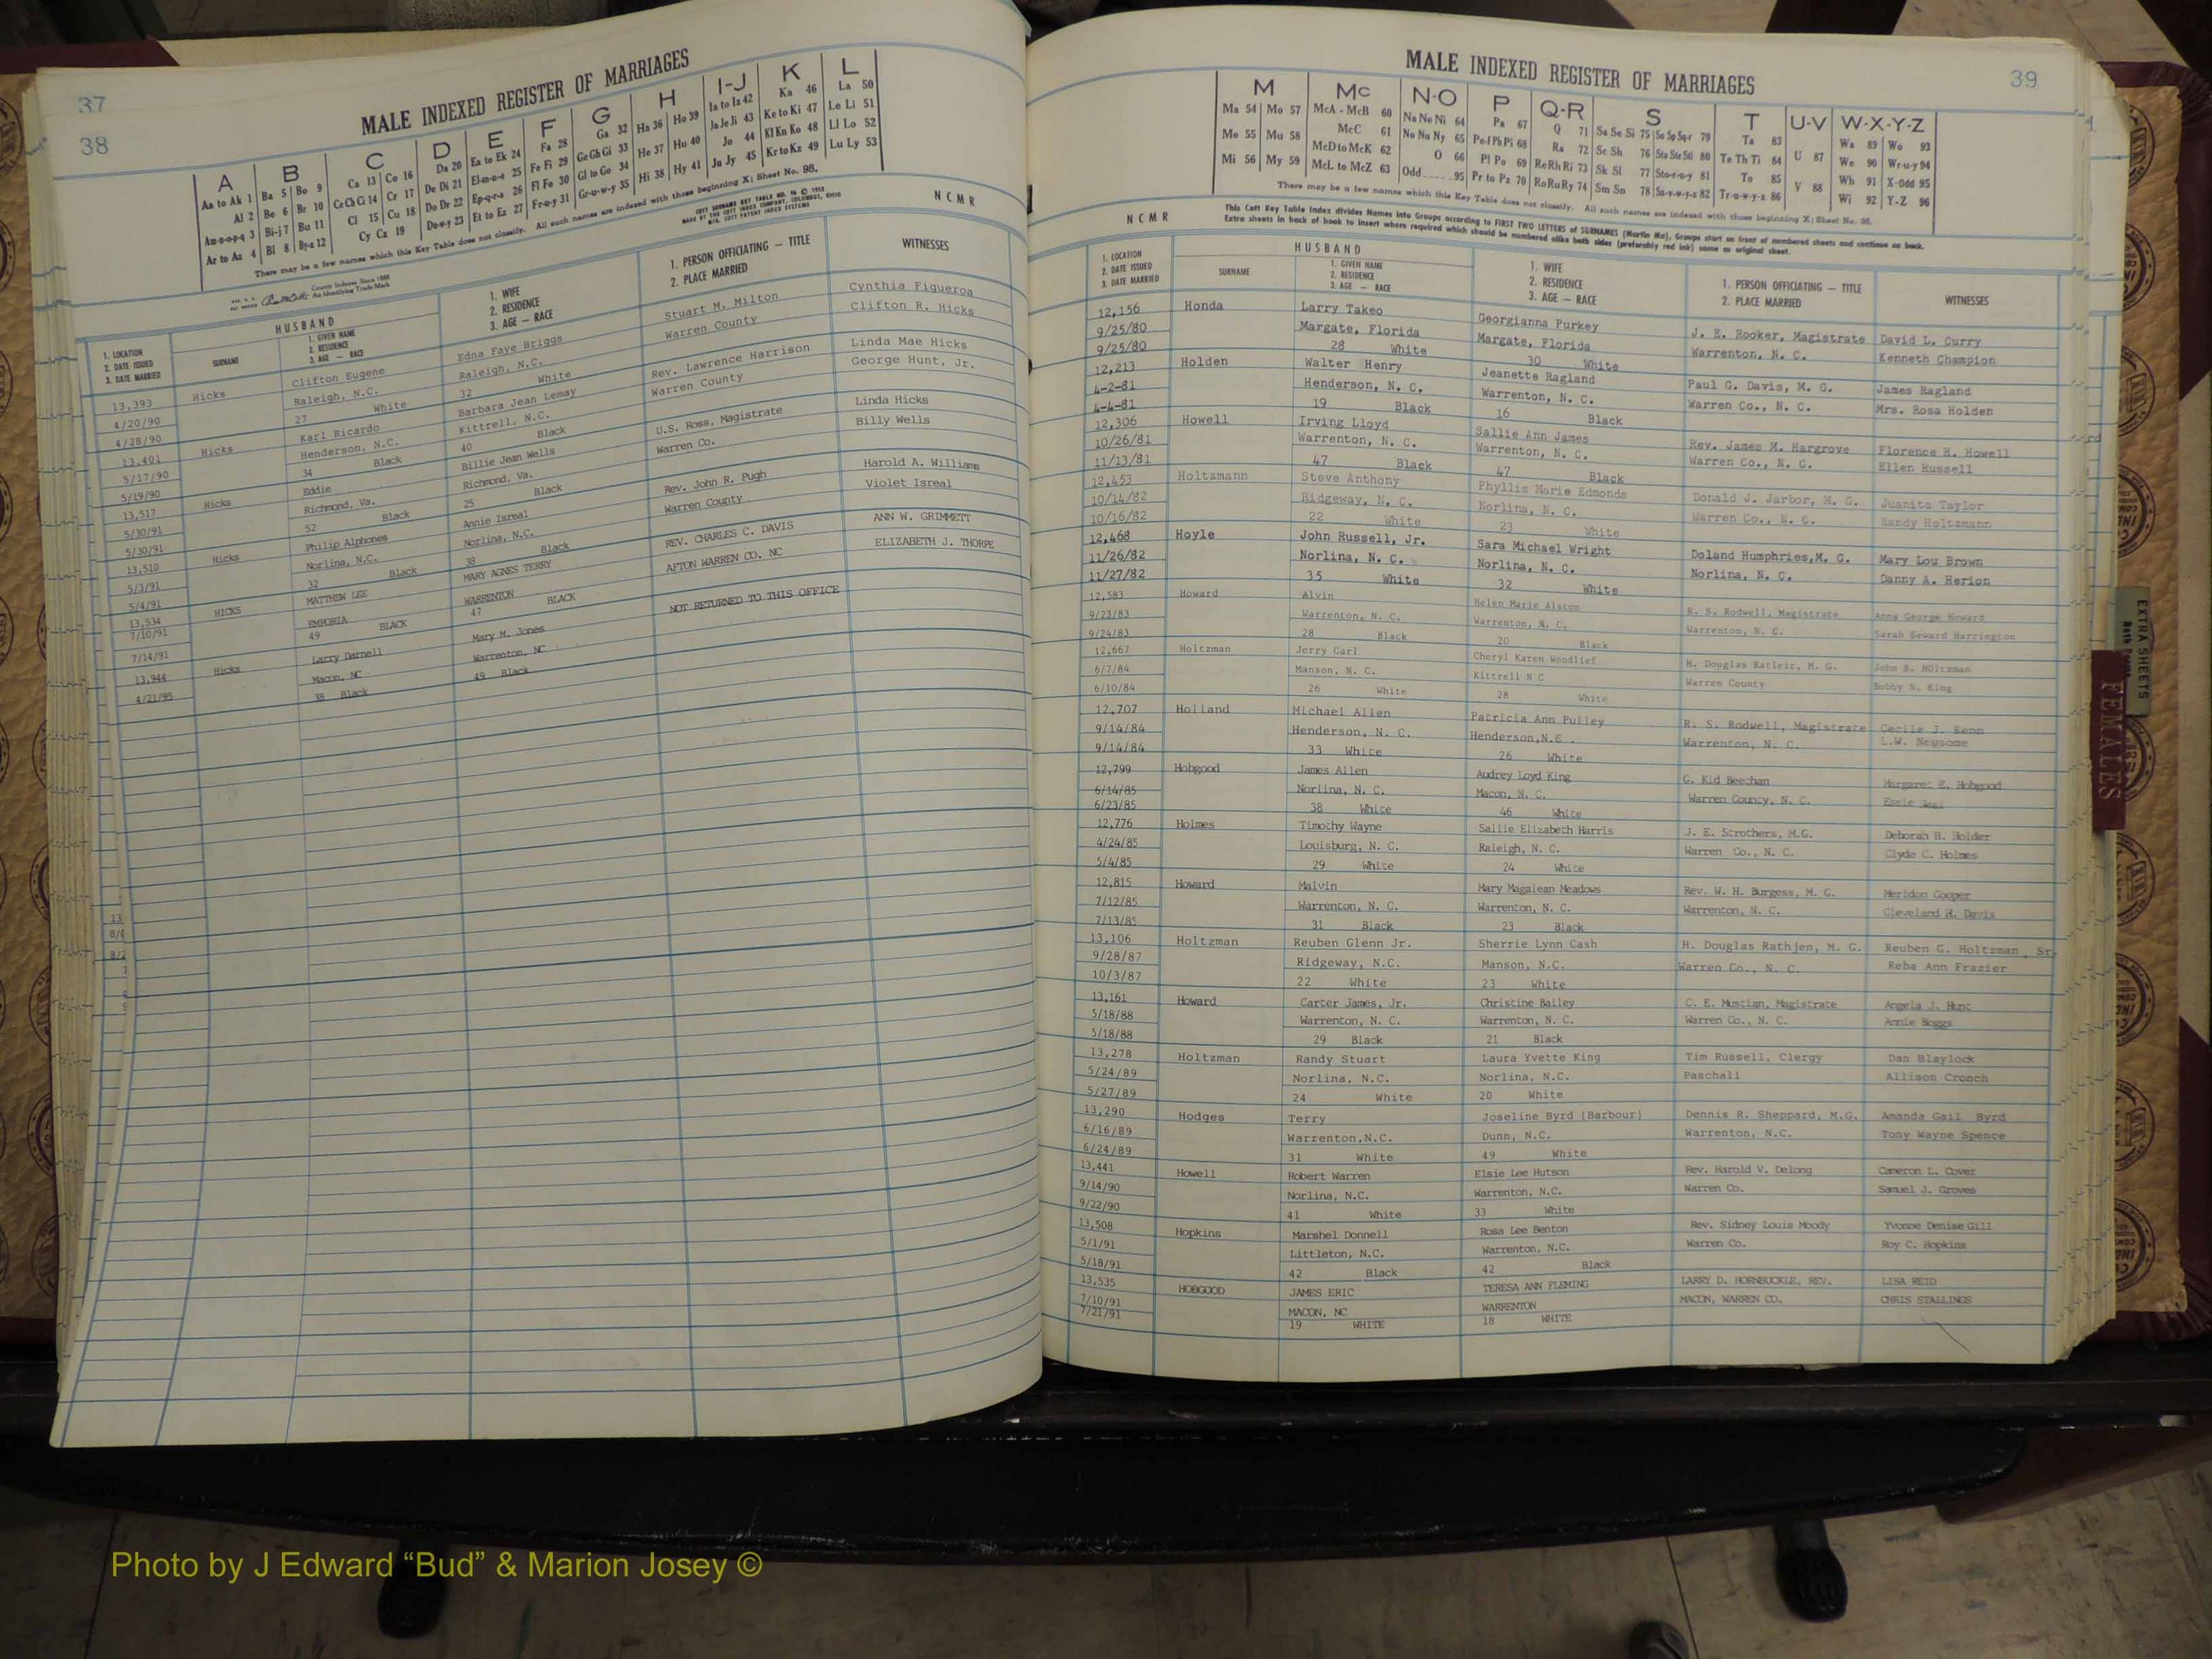 37
38
MALE INDEXED REGISTER OF MARRIAGES
A B C D E F G H I-J K L
Aa to Ak 1 Ba 5 Bo 9 Ca 13 Co 16 Da 20 Ea to Ek 24 Fa 28 Ga 32 Ha 36 Ho 39 Ia to Iz 42 Ka 46 La 50
Al 2 Be 6 Br 10 Ce Ch Ci 14 Cr 17 De Di 21 El-m-n-o 25 Fe Fi 29 Ge Gh Gi 33 He 37 Hu 40 Ja Je Ji 43 Ke to Ki 47 Le Li 51
Am-n-o-p-q 3 Bi-j 7 Bu 11 Cl 15 Cu 18 Do Dr 22 Ep-q-r-s 26 Fl Fo 30 Gl to Go 34 Hi 38 Hy 41 Jo 44 Kl Kn Ko 48 Ll Lo 52
Ar to Az 4 Bl 8 By-z 12 Cy Cz 19 Du-w-y 23 Et to Ez 27 Fr-u-y 31 Gr-u-w-y 35 Ju Jy 45 Kr to Kz 49 Lu Ly 53
There may be a few names which this Key Table does not classify. All such names are indexed with those beginning X; Sheet No. 95.
N C M R
HUSBAND
1. LOCATION
2. DATE ISSUED
3. DATE MARRIED
SURNAME
1. GIVEN NAME
2. RESIDENCE
3. AGE — RACE
1. WIFE
2. RESIDENCE
3. AGE — RACE
1. PERSON OFFICIATING — TITLE
2. PLACE MARRIED
WITNESSES
13,393 Hicks Clifton Eugene Edna Faye Briggs Stuart M. Milton Cynthia Figueroa
4/20/90 Raleigh, N.C. Raleigh, N.C. Warren County Clifton R. Hicks
4/28/90 27 White 32 White
13,401 Hicks Karl Ricardo Barbara Jean Lemay Rev. Lawrence Harrison Linda Mae Hicks
5/17/90 Henderson, N.C. Kittrell, N.C. Warren County George Hunt, Jr.
5/19/90 34 Black 40 Black
13,517 Hicks Eddie Billie Jean Wells U.S. Ross, Magistrate Linda Hicks
5/30/91 Richmond, Va. Richmond, Va. Warren Co. Billy Wells
5/30/91 52 Black 25 Black
13,510 Hicks Philip Alphones Annie Isreal Rev. John R. Pugh Harold A. Williams
5/3/91 Norlina, N.C. Norlina, N.C. Warren County Violet Isreal
5/4/91 32 Black 38 Black
13,534 HICKS MATTHEW LEE MARY AGNES TERRY REV. CHARLES C. DAVIS ANN W. GRIMMETT
7/10/91 EMPORIA WARRENTON AFTON WARREN CO. NC ELIZABETH J. THORPE
7/14/91 49 BLACK 47 BLACK
13,944 Hicks Larry Darnell Mary M. Jones NOT RETURNED TO THIS OFFICE
4/21/95 Macon, NC Warrenton, NC
38 Black 49 Black
39
MALE INDEXED REGISTER OF MARRIAGES
M Mc N-O P Q-R S T U-V W-X-Y-Z
Ma 54 Mo 57 McA - McB 60 Na Ne Ni 64 Pa 67 Q 71 Sa Se Si 75 So Sp Sq-r 79 Ta 83 U 87 Wa 89 Wo 93
Me 55 Mu 58 McC 61 No Nu Ny 65 Pe-f Ph Pi 68 Ra 72 Sc Sh 76 Sta Ste Sti 80 Te Th Ti 84 V 88 We 90 Wr-u-y 94
Mi 56 My 59 McD to McK 62 O 66 Pl Po 69 Re Rh Ri 73 Sk Sl 77 Sto-r-u-y 81 To 85 Wh 91 X-Odd 95
McL to McZ 63 Odd 95 Pr to Pz 70 Ro Ru Ry 74 Sm Sn 78 Su-v-w-y-z 82 Tr-u-w-y-z 86 Wi 92 Y-Z 96
There may be a few names which this Key Table does not classify. All such names are indexed with those beginning X; Sheet No. 95.
This Cott Key Table Index divides Names into Groups according to FIRST TWO LETTERS of SURNAMES (Martin Ma), Groups start on front of numbered sheets and continue on back.
Extra sheets in back of book to insert where required which should be numbered alike both sides (preferably red ink) same as original sheet.
N C M R
HUSBAND
1. LOCATION
2. DATE ISSUED
3. DATE MARRIED
SURNAME
1. GIVEN NAME
2. RESIDENCE
3. AGE — RACE
1. WIFE
2. RESIDENCE
3. AGE — RACE
1. PERSON OFFICIATING — TITLE
2. PLACE MARRIED
WITNESSES
12,156 Honda Larry Takeo Georgianna Purkey J. E. Rooker, Magistrate David L. Curry
9/25/80 Margate, Florida Margate, Florida Warrenton, N. C. Kenneth Champion
9/25/80 28 White 30 White
12,213 Holden Walter Henry Jeanette Ragland Paul G. Davis, M. G. James Ragland
4-2-81 Henderson, N. C. Warrenton, N. C. Warren Co., N. C. Mrs. Rosa Holden
4-4-81 19 Black 16 Black
12,306 Howell Irving Lloyd Sallie Ann James Rev. James M. Hargrove Florence H. Howell
10/26/81 Warrenton, N. C. Warrenton, N. C. Warren Co., N. C. Ellen Russell
11/13/81 47 Black 47 Black
12,453 Holtzmann Steve Anthony Phyllis Marie Edmonds Donald J. Jarbor, M. G. Juanita Taylor
10/14/82 Ridgeway, N. C. Norlina, N. C. Warren Co., N. C. Randy Holtzmann
10/16/82 22 White 23 White
12,468 Hoyle John Russell, Jr. Sara Michael Wright Doland Humphries,M. G. Mary Lou Brown
11/26/82 Norlina, N. C. Norlina, N. C. Norlina, N. C. Danny A. Herion
11/27/82 35 White 32 White
12,583 Howard Alvin Helen Marie Alston R. S. Rodwell, Magistrate Anna George Howard
9/23/83 Warrenton, N. C. Warrenton, N. C. Warrenton, N. C. Sarah Seward Harrington
9/24/83 28 Black 20 Black
12,667 Holtzman Jerry Carl Cheryl Karen Woodlief H. Douglas Ratleir, M. G. John B. HOltzman
6/7/84 Manson, N. C. Kittrell N C Warren County Bobby N. King
6/10/84 26 White 28 White
12,707 Holland Michael Allen Patricia Ann Pulley R. S. Rodwell, Magistrate Cecile J. Renn
9/14/84 Henderson, N. C. Henderson,N.C. Warrenton, N. C. L.W. Newsome
9/14/84 33 White 26 White
12,799 Hobgood James Allen Audrey Loyd King G. Kid Beechan Margaret E. Hobgood
6/14/85 Norlina, N. C. Macon, N. C. Warren County, N. C. Essie
6/23/85 38 White 46 White
12,776 Holmes Timothy Wayne Sallie Elizabeth Harris J. E. Strothers, M.G. Deborah H. Holder
4/24/85 Louisburg, N. C. Raleigh, N. C. Warren Co., N. C. Clyde C. Holmes
5/4/85 29 White 24 White
12,815 Howard Malvin Mary Magalean Meadows Rev. W. H. Burgess, M. G. Meridon Cooper
7/12/85 Warrenton, N. C. Warrenton, N. C. Warrenton, N. C. Cleveland H. Davis
7/13/85 31 Black 23 Black
13,106 Holtzman Reuben Glenn Jr. Sherrie Lynn Cash H. Douglas Rathjen, M. G. Reuben G. Holtzman, Sr.
9/28/87 Ridgeway, N.C. Manson, N.C. Warren Co., N. C. Reba Ann Frazier
10/3/87 22 White 23 White
13,161 Howard Carter James, Jr. Christine Bailey C. E. Mustian, Magistrate Angela J. Hunt
5/18/88 Warrenton, N. C. Warrenton, N. C. Warren Co., N. C. Annie Boggs
5/18/88 29 Black 21 Black
13,278 Holtzman Randy Stuart Laura Yvette King Tim Russell, Clergy Dan Blaylock
5/24/89 Norlina, N.C. Norlina, N.C. Paschall Allison Cronch
5/27/89 24 White 20 White
13,290 Hodges Terry Joseline Byrd (Barbour) Dennis R. Sheppard, M.G. Amanda Gail Byrd
6/16/89 Warrenton,N.C. Dunn, N.C. Warrenton, N.C. Tony Wayne Spence
6/24/89 31 White 49 White
13,441 Howell Robert Warren Elsie Lee Hutson Rev. Harold V. Delong Cameron L. Cover
9/14/90 Norlina, N.C. Warrenton, N.C. Warren Co. Samuel J. Groves
9/22/90 41 White 33 White
13,508 Hopkins Marshel Donnell Rosa Lee Benton Rev. Sidney Louis Moody Yvonne Denise Gill
5/1/91 Littleton, N.C. Warrenton, N.C. Warren Co. Roy C. Hopkins
5/18/91 42 Black 42 Black
13,535 HOBGOOD JAMES ERIC TERESA ANN FLEMING LARRY D. HORNBUCKLE, REV. LISA REID
7/10/91 MACON, NC WARRENTON MACON, WARREN CO. CHRIS STALLINGS
7/21/91 19 WHITE 18 WHITE
EXTRA SHEETS
FEMALES
Photo by J Edward “Bud” & Marion Josey ©